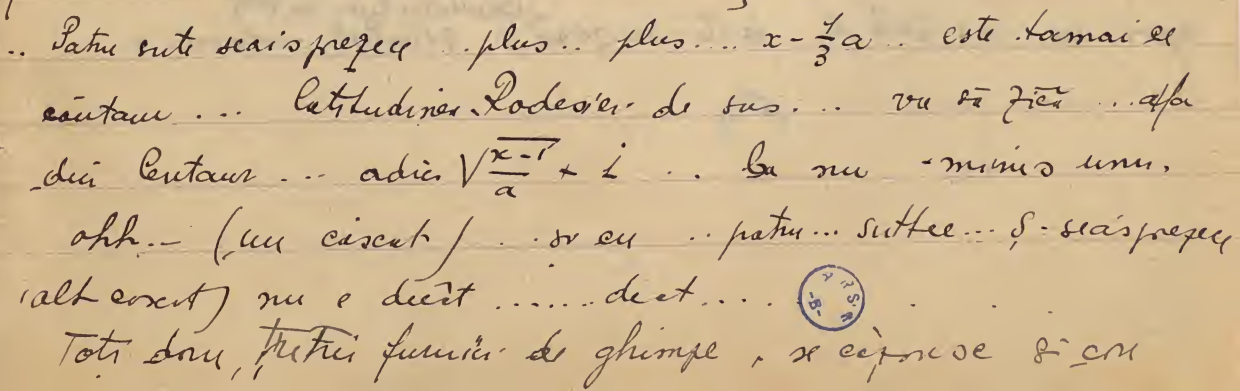 .. Patru sute seaisprezece .. plus .. plus .... x - 1/3 a .. este tamai ce
căutam ... latitudinea de sus ... vu să zică ... alfa
din Centaur ... adică √(x-1)/a + 1 .. ba nu - minus unu.
ohh.- (un căscat) .. și cu .. patru ... suttee ... ș-seaisprezece
(alt căscat) nu e decât ...... decât ....
Toți dorm, furnici de ghimpe, se și cu